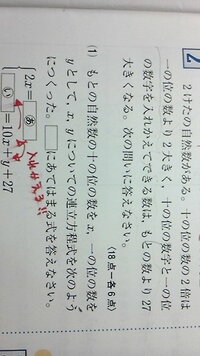 2
2けたの自然数がある。十の位の数の2倍は
一の位の数より2大きく、十の位の数字と一の位
の数字を入れかえてできる数は、もとの数より27
大きくなる。次の問いに答えなさい。
(18点=各6点)
(1) もとの自然数の十の位の数をx、一の位の数を
yとして、x, yについての連立方程式を次のよう
につくった。□にあてはまる式を答えなさい。
2x= あ
い =10x+y+27